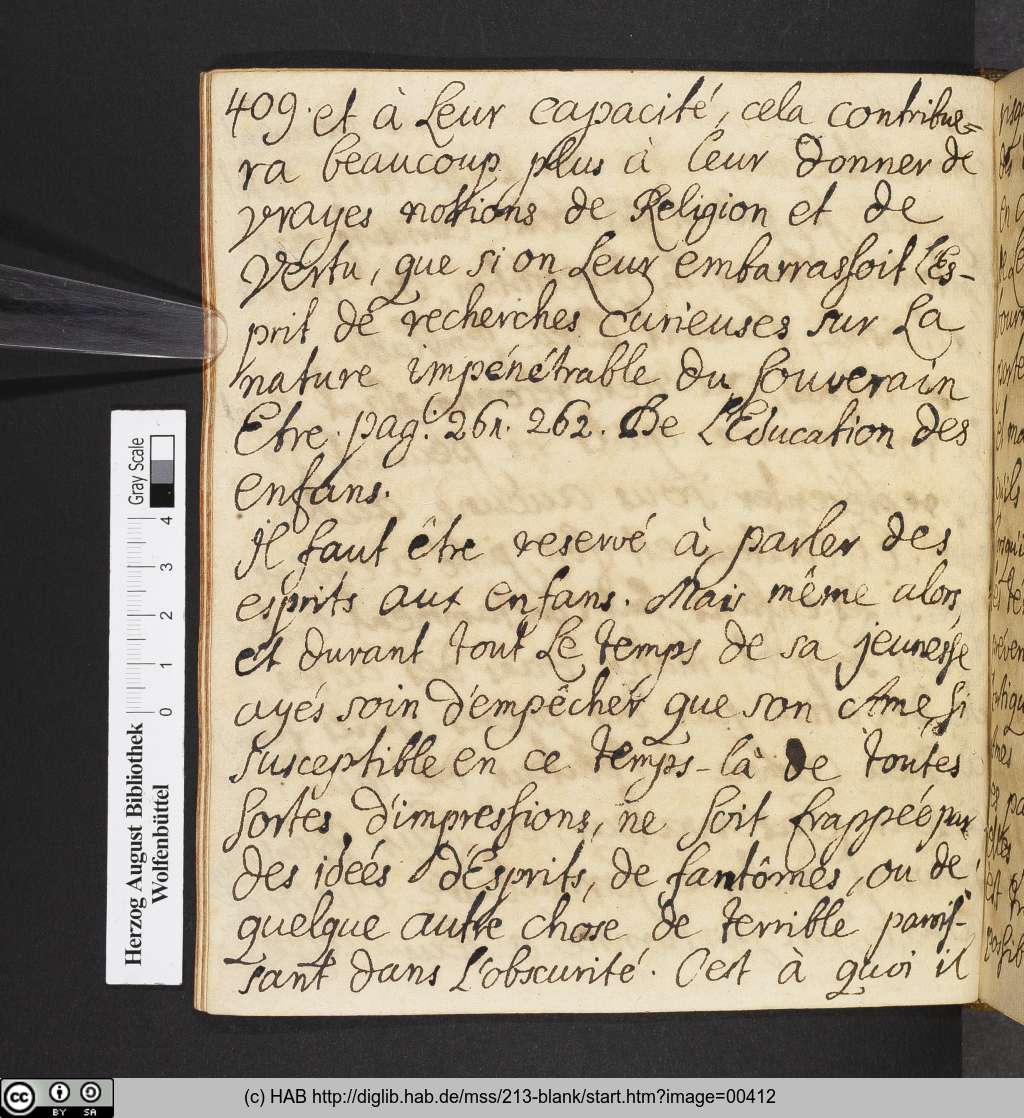 409. et à Leur capacité, cela contribue=
ra beaucoup plus à leur donner de
vrayes notions de Religion et de
vertu, que si on Leur embarrassoit L'Es-
prit de recherches curieuses sur La
nature impénétrable du souverain
Etre. pag. 261. 262. De L'Education des
enfans.
Il faut être reservé à parler des
esprits aux enfans. Mais même alors,
et durant tout Le temps de sa jeunesse
ayés soin d'empêcher que son Ame si
susceptible en ce temps-là de toutes
sortes d'impressions, ne soit frappée par
des ideés d'Esprits, de fantômes, ou de
quelque autre chose de terrible parois-
sant dans L'obscurité. C'est à quoi il
Herzog August Bibliothek
Wolfenbüttel
Gray Scale
0 1 2 3 4
cc BY SA
(c) HAB http://diglib.hab.de/mss/213-blank/start.htm?image=00412